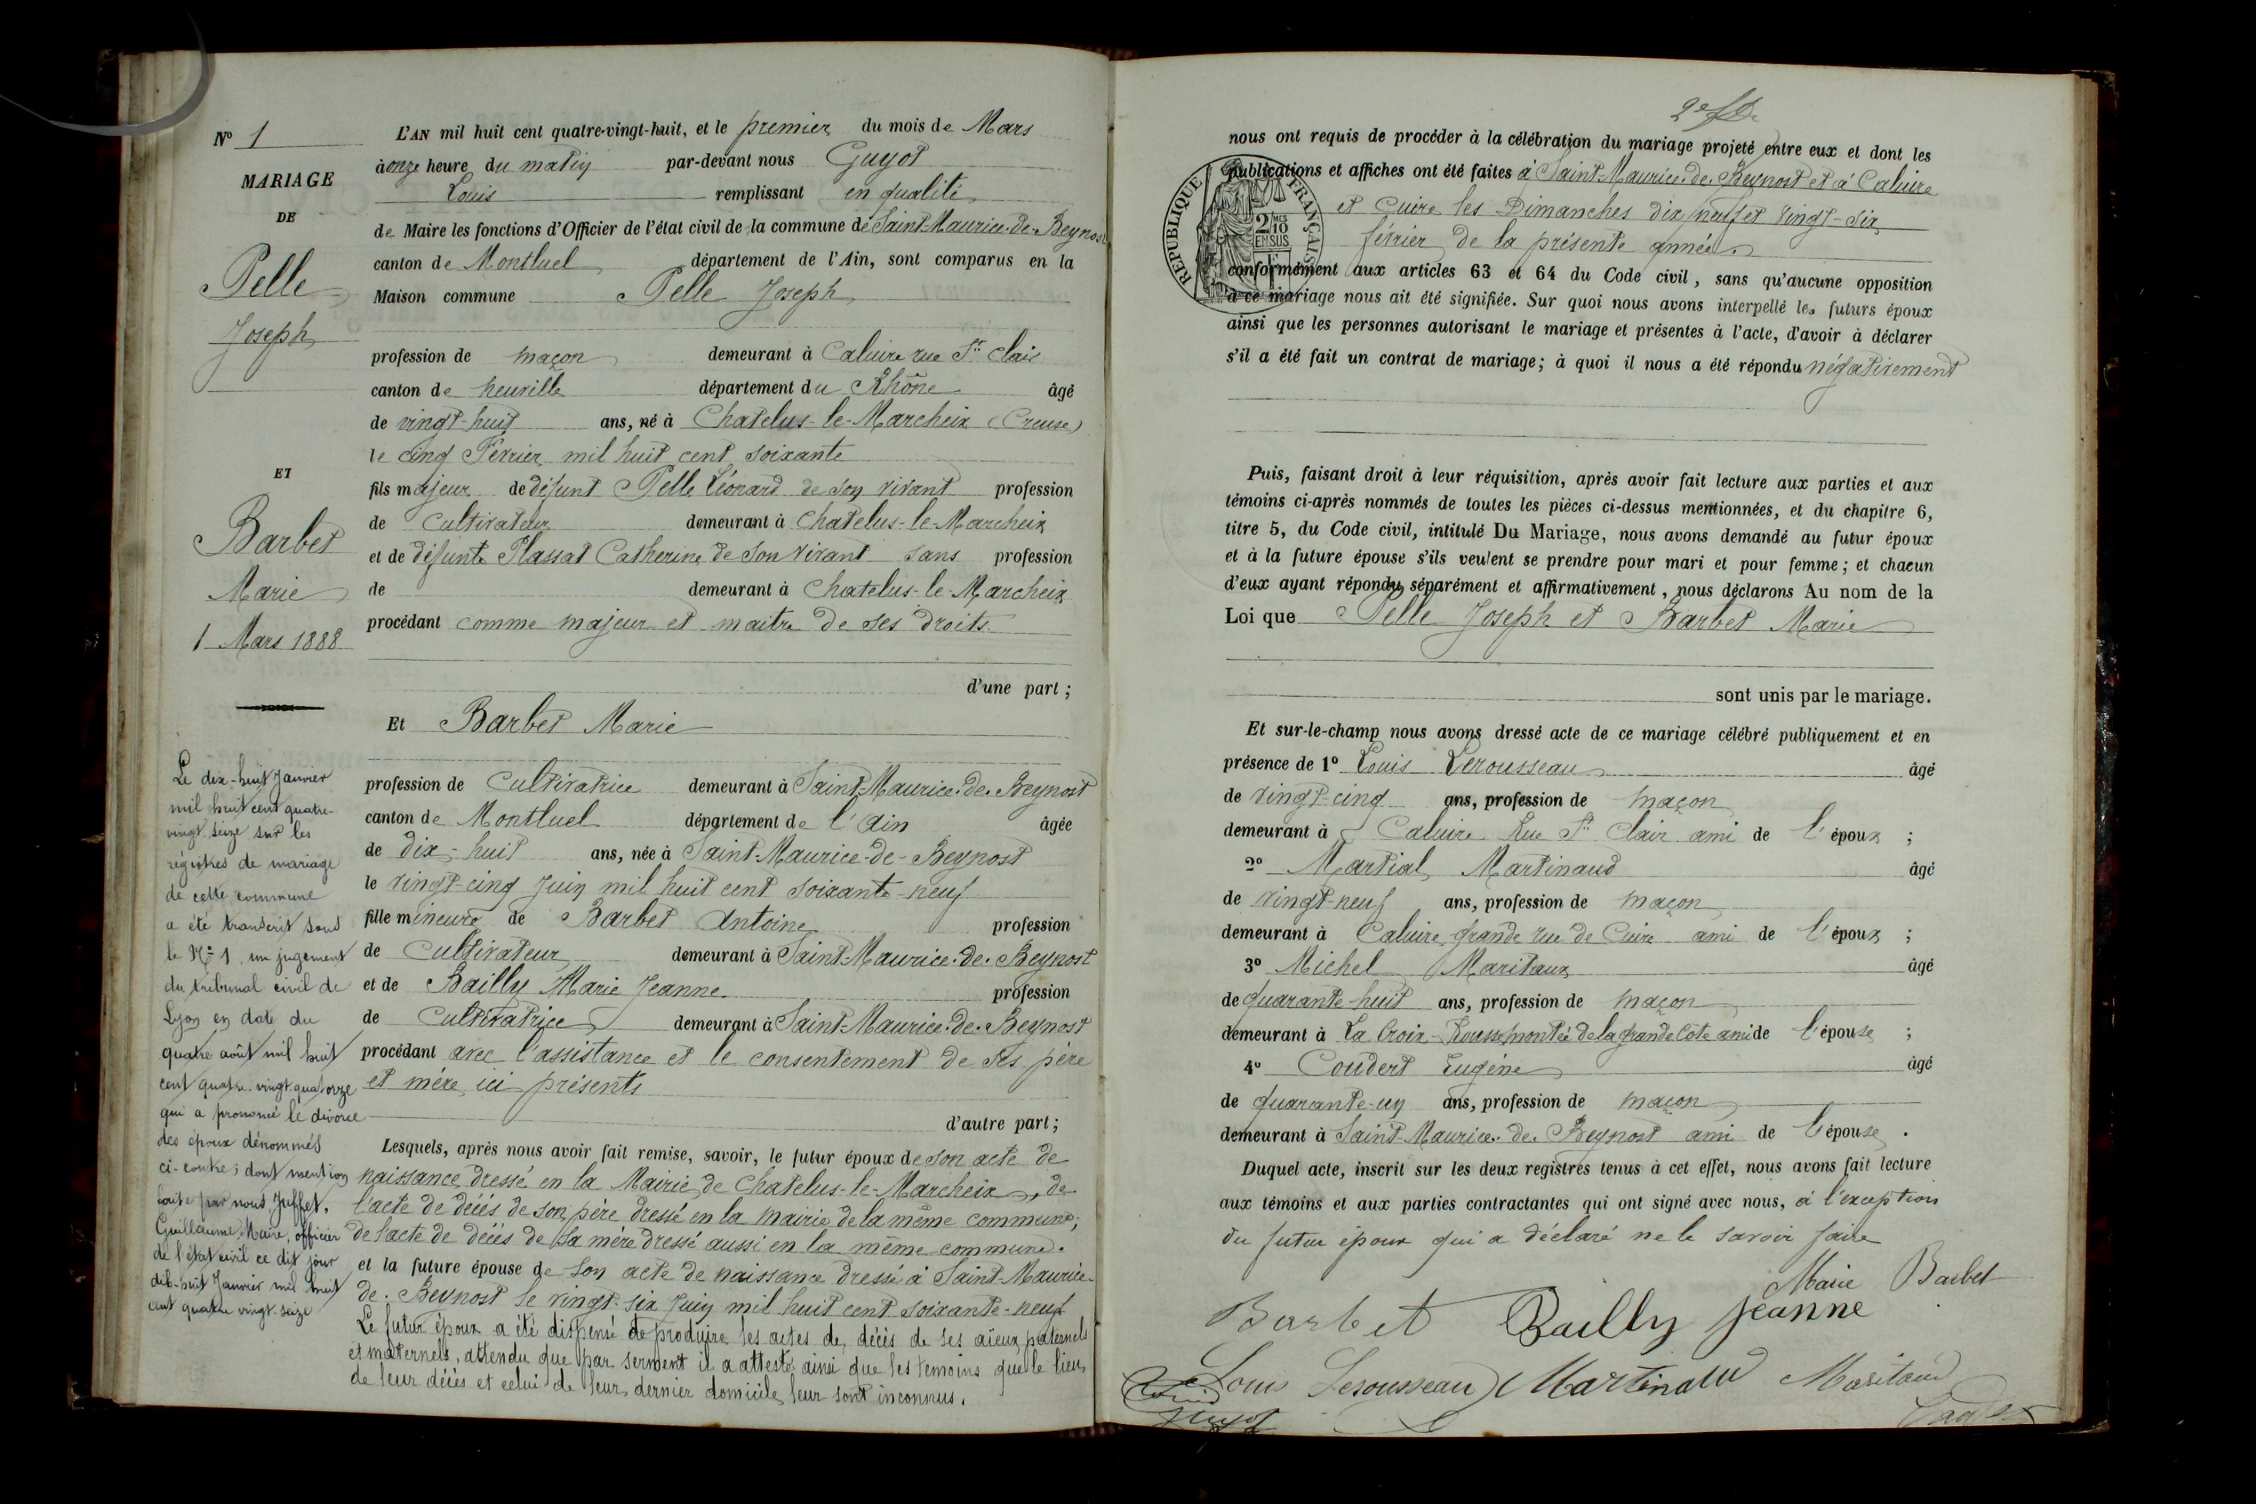 N° 1
MARIAGE
DE
Pelle
Joseph
ET
Barbet
Marie
1 Mars 1888
Le dix-huit Janvier
mil huit cent quatre-
vingt seize sur les
régistres de mariage
de cette commune
a été transcrit sous
le N° 1, un jugement
du tribunal civil de
Lyon en date du
quatre août mil huit
cent quatre-vingt quatorze
qui a prononcé le divorce
des époux dénommés
ci-contre; dont mention
faite par nous Juffet,
Guillaume, Maire, officier
de l'état civil ce dit jour
dix-huit Janvier mil huit
cent quatre vingt-seize
L'AN mil huit cent quatre-vingt-huit, et le premier du mois de Mars
à onze heure du matin par-devant nous Guyot
Louis remplissant en qualité
de Maire les fonctions d'Officier de l'état civil de la commune de Saint-Maurice-de-Beynost
canton de Montluel département de l'Ain, sont comparus en la
Maison commune Pelle Joseph
profession de maçon demeurant à Caluire rue St Clair
canton de Neuville département du Rhône âgé
de vingt-huit ans, né à Chatelus-le-Marcheix (Creuse)
le cinq Février mil huit cent soixante
fils majeur de défunt Pelle Léonard de son vivant profession
de Cultivateur demeurant à Chatelus-le-Marcheix
et de défunte Plassat Catherine de son vivant sans profession
de demeurant à Chatelus-le-Marcheix
procédant comme majeur et maitre de ses droits
d'une part;
Et Barbet Marie
profession de Cultivatrice demeurant à Saint-Maurice-de-Beynost
canton de Montluel département de l'Ain âgée
de dix-huit ans, née à Saint-Maurice-de-Beynost
le vingt-cinq Juin mil huit cent soixante-neuf
fille mineure de Barbet Antoine profession
de Cultivateur demeurant à Saint-Maurice-de-Beynost
et de Bailly Marie Jeanne profession
de Cultivatrice demeurant à Saint-Maurice-de-Beynost
procédant avec l'assistance et le consentement de ses père
et mère ici présents
d'autre part;
Lesquels, après nous avoir fait remise, savoir, le futur époux de son acte de
naissance dressé en la Mairie de Chatelus-le-Marcheix, de
l'acte de décés de son père dressé en la mairie de la même commune;
de l'acte de décés de sa mère dressé aussi en la même commune.
et la future épouse de son acte de naissance dressé à Saint-Maurice-
de-Beynost le vingt-six Juin mil huit cent soixante-neuf
Le futur époux a été dispensé de produire les actes de décès de ses aïeux paternels
et maternels, attendu que par serment il a attesté ainsi que les témoins que le lieu
de leur décès et celui de leur dernier domicile leur sont inconnus.
2e
RÉPUBLIQUE FRANÇAISE
2/10 EN SUS
nous ont requis de procéder à la célébration du mariage projeté entre eux et dont les
publications et affiches ont été faites à Saint-Maurice-de-Beynost et à Caluire
et Cuire les Dimanches dix neuf et vingt-six
février de la présente année.
conformément aux articles 63 et 64 du Code civil, sans qu'aucune opposition
à ce mariage nous ait été signifiée. Sur quoi nous avons interpellé les futurs époux
ainsi que les personnes autorisant le mariage et présentes à l'acte, d'avoir à déclarer
s'il a été fait un contrat de mariage; à quoi il nous a été répondu négativement
Puis, faisant droit à leur réquisition, après avoir fait lecture aux parties et aux
témoins ci-après nommés de toutes les pièces ci-dessus mentionnées, et du chapitre 6,
titre 5, du Code civil, intitulé Du Mariage, nous avons demandé au futur époux
et à la future épouse s'ils veulent se prendre pour mari et pour femme; et chacun
d'eux ayant répondu séparément et affirmativement, nous déclarons Au nom de la
Loi que Pelle Joseph et Barbet Marie
sont unis par le mariage.
Et sur-le-champ nous avons dressé acte de ce mariage célébré publiquement et en
présence de 1° Louis Lerousseau âgé
de vingt-cinq ans, profession de maçon
demeurant à Caluire Rue St Clair ami de l'époux ;
2° Martial Martinaud âgé
de vingt-neuf ans, profession de maçon
demeurant à Caluire grande rue de Cuire ami de l'époux ;
3° Michel Maritaux âgé
de quarante-huit ans, profession de maçon
demeurant à La Croix-Rousse montée de la grande Côte ami de l'épouse ;
4° Coudert Eugène âgé
de quarante-un ans, profession de maçon
demeurant à Saint-Maurice-de-Beynost ami de l'épouse .
Duquel acte, inscrit sur les deux registres tenus à cet effet, nous avons fait lecture
aux témoins et aux parties contractantes qui ont signé avec nous, à l'exception
du futur époux qui a déclaré ne le savoir faire
Marie Barbet
Barbet Bailly Jeanne
Louis Lerousseau Martinaud Maritaud
Guyot